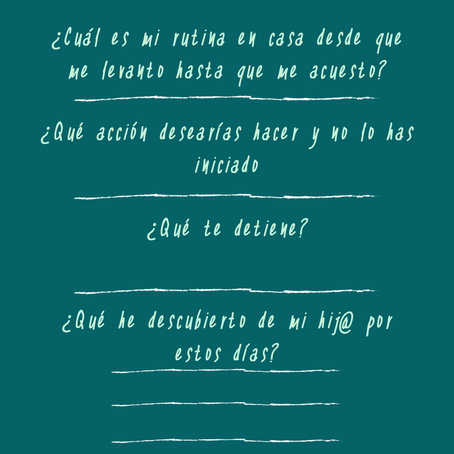 ¿Cuál es mi rutina en casa desde que
me levanto hasta que me acuesto?
¿Qué acción desearías hacer y no lo has
iniciado
¿Qué te detiene?
¿Qué he descubierto de mi hij@ por
estos días?